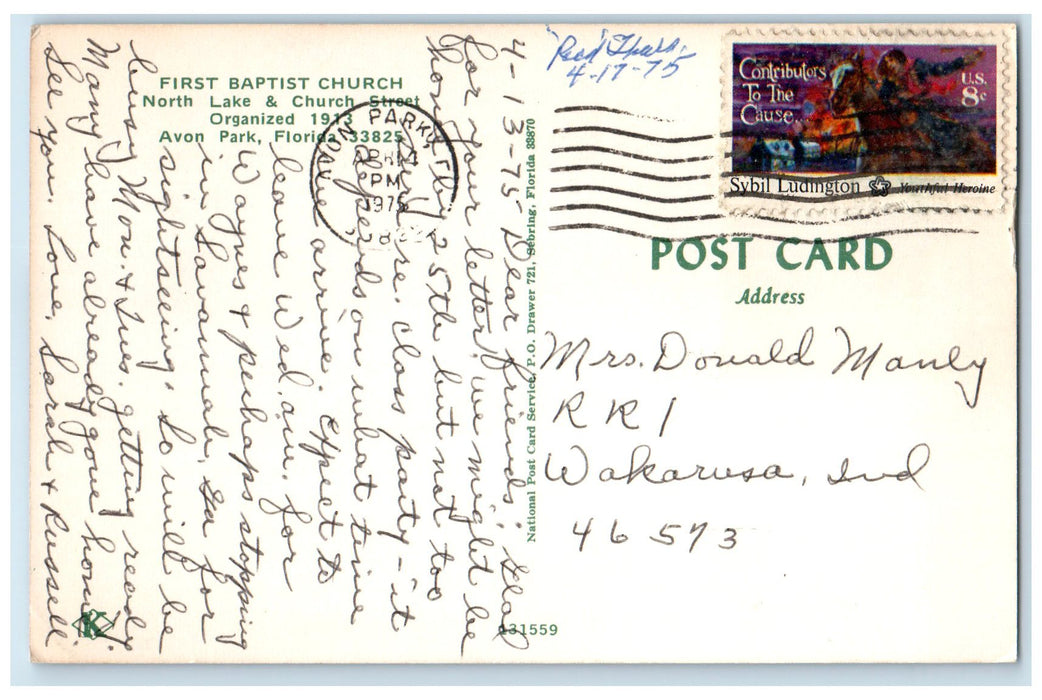 FIRST BAPTIST CHURCH
North Lake & Church Street
Organized 1913
Avon Park, Florida 33825
4-13-75 Dear friends; Glad
for your letter, we might be
home by 25th but not too
sure. Class party - it
depends on what time
we arrive. Expect to
leave Wed. a.m. for
Waynes & perhaps stopping
in Savannah, Ga for
sightseeing. So will be
busy Mon. & Tues. getting ready.
Many have already gone home.
See you. Love, Sarah & Russell
K
National Post Card Service, P.O. Drawer 721, Sebring, Florida 33870
131559
AVON PARK, FL
APR 14
PM
1975
"Read" Thurs.
4-17-75
Contributors
To The
Cause...
U.S.
8c
Sybil Ludington Youthful Heroine
POST CARD
Address
Mrs. Donald Manly
RR 1
Wakarusa, Ind
46573